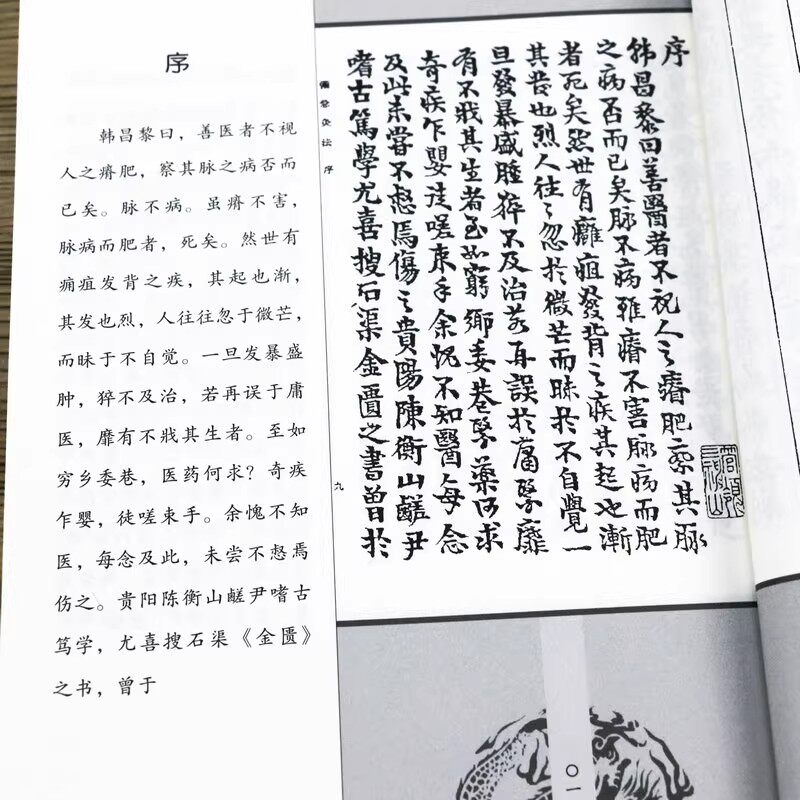 序
韩昌黎曰，善医者不视
人之瘠肥，察其脉之病否而
已矣。脉不病。虽瘠不害，
脉病而肥者，死矣。然世有
痈疽发背之疾，其起也渐，
其发也烈，人往往忽于微芒，
而昧于不自觉。一旦发暴盛
肿，猝不及治，若再误于庸
医，靡有不戕其生者。至如
穷乡委巷，医药何求？奇疾
乍婴，徒嗟束手。余愧不知
医，每念及此，未尝不惄焉
伤之。贵阳陈衡山鹾尹嗜古
笃学，尤喜搜石渠《金匮》
之书，曾于
序
韓昌黎曰善醫者不視人之瘠肥察其脉
之病否而已矣脉不病雖瘠不害脉病而肥
者死矣然世有癰疽發背之疾其起也漸
其發也烈人往〻忽於微芒而昧於不自覺一
旦發暴盛腫猝不及治若再誤於庸醫靡
有不戕其生者至如窮鄉委巷醫藥何求
奇疾乍嬰徒嗟束手余愧不知醫每念
及此未嘗不惄焉傷之貴陽陳衡山鹺尹
嗜古篤學尤喜搜石渠金匱之書曾於
備急灸法 序
九
〇一